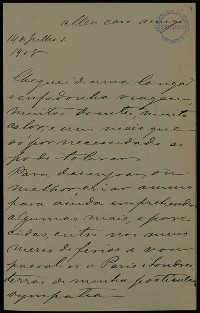 Meu caro amigo
14 Julho
1908
Cheguei de uma longa
e enfadonha viagem
muitos doentes, muito
calor, e um mais que
só por necessidade se
pode tolerar.
Para desenjoar, ou
melhor, criar animo
para ainda emprehender
algumas mais, e pare-
cidas, entro nos meus
meses de ferias e vou
passal-os a Paris e Londres
terras de minha particular
sympathia.